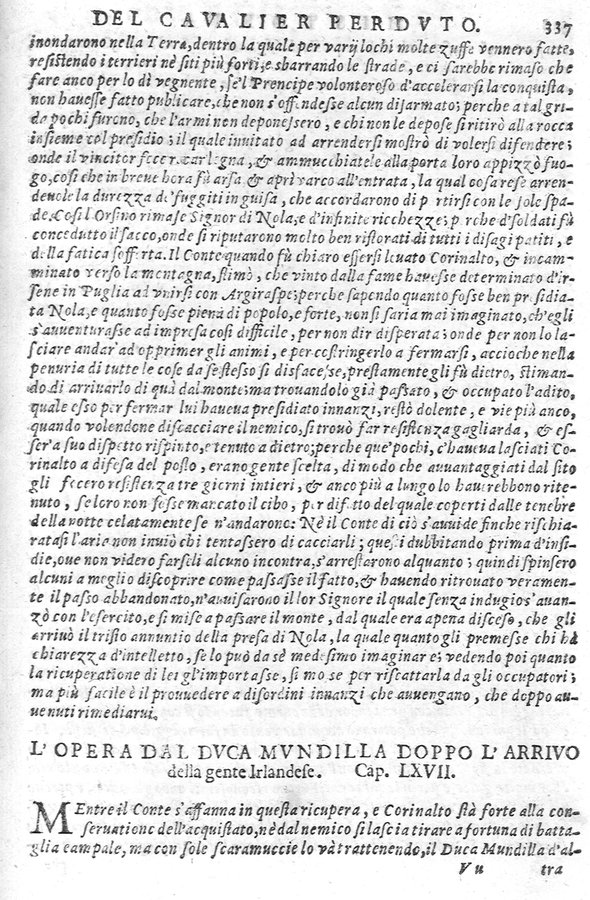 DEL CAVALIER PERDVTO. 337
inondarono nella Terra, dentro la quale per varij lochi molte zuffe vennero fatte,
resistendo i terrieri ne siti più forti, e sbarrando le strade, e ci sarebbe rimaso che
fare anco per lo dì vegnente, se'l Prencipe volontoroso d'accelerarsi la conquista,
non hauesse fatto publicare, che non s'offendesse alcun disarmato; perche a tal gri-
do pochi furono, che l'armi non deponessero, e chi non le depose si ritirò alla rocca
insieme col presidio; il quale inuitato ad arrendersi mostrò di volersi difendere;
onde il vincitor fece recar legna, & ammucchiatele alla porta loro appizzò fuo-
go, così che in breue hora fù arsa, & aprì varco all'entrata, la qual cosa rese arren-
deuole la durezza de'fuggiti in guisa, che accordarono di p rtirsi con le sole spa-
de. Così l'Orsino rimase Signor di Nola, e d'infinite ricchezze; p rche d'soldati fù
conceduto il sacco, onde si riputarono molto ben ristorati di tutti i disagi patiti, e
della fatica sofferta. Il Conte quando fù chiaro essersi leuato Corinalto, & incam-
minato verso la montagna, stimò, che vinto dalla fame hauesse determinato d'ir-
sene in Puglia ad vnirsi con Argiraspe; perche sapendo quanto fosse ben presidia-
ta Nola, e quanto fosse piena di popolo, e forte, non si saria mai imaginato, ch'egli
s'auuenturasse ad impresa così difficile, per non dir disperata; onde per non lo la-
sciare andar'ad opprimer gli animi, e per costringerlo a fermarsi, accioche nella
penuria di tutte le cose da se stesso si disfacesse, prestamente gli fù dietro, stiman-
do di arriuarlo di quà dal monte; ma trouandolo già passato, & occupato l'adito,
quale esso per fermar lui haueua presidiato innanzi, restò dolente, e vie più anco,
quando volendone discacciare il nemico, si trouò far resistenza gagliarda, & es-
ser'a suo dispetto rispinto, e tenuto a dietro; perche que'pochi, c'haueua lasciati Co-
rinalto a difesa del posto, erano gente scelta, di modo che auuantaggiati dal sito
gli fecero resistenza tre giorni intieri, & anco più a lungo lo hauerebbono rite-
nuto, se loro non fosse mancato il cibo, per difetto del quale coperti dalle tenebre
della notte celatamente se n'andarono: Nè il Conte di ciò s'auuide finche rischia-
ratasi l'aria non inuiò chi tentassero di cacciarli; questi dubbitando prima d'insi-
die, oue non videro farseli alcuno incontra, s'arrestarono alquanto; quindi spinsero
alcuni a meglio discoprire come passasse il fatto, & hauendo ritrouato veramen-
te il passo abbandonato, n'auuisarono il lor Signore il quale senza indugio s'auan-
zò con l'esercito, e si mise a passare il monte, dal quale era apena disceso, che gli
arriuò il tristo annuntio della presa di Nola, la quale quanto gli premesse chi hà
chiarezza d'intelletto, se lo può da sè medesimo imaginare; vedendo poi quanto
la ricuperatione di lei gl'importasse, si mosse per riscattarla dagli occupatori;
ma più facile è il prouuedere a disordini innanzi che auuengano, che doppo au-
uenuti rimediarui.
L'OPERA DAL DVCA MVNDILLA DOPPO L'ARRIVO
della gente Irlandese. Cap. LXVII.
MEntre il Conte s'affanna in questa ricupera, e Corinalto stà forte alla con-
seruatione dell'acquistato, nè dal nemico si lascia tirare a fortuna di batta-
glia campale, ma con sole scaramuccie lo và trattenendo, il Duca Mundilla d'al-
Vu tra